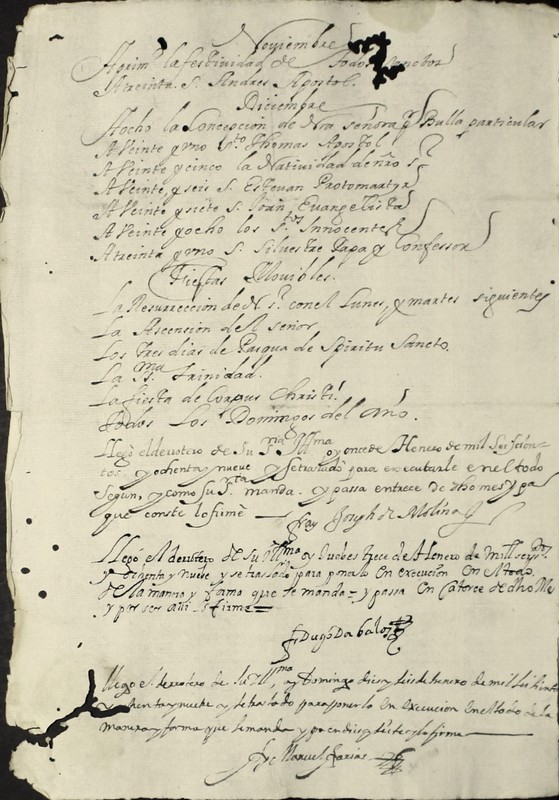 Noviembre
A prim.º la festividad de Todos
A treinta S. Andres Apostol.
Diciembre
A ocho la Concepcion de Nra señora p.r Bulla particular
A Veinte y uno S.to Thomas Apostol
A Veinte y cinco la Natividad de ñro S.r
A Veinte y seis S. Estevan Protomartyr
A Veinte y siete S. Joan Evangelista
A Veinte y ocho los S.tos Innocentes
A treinta y uno S. Silvestre Papa y Confessor
Fiestas Movibles.
La Resurreccion de N. S.r con el Lunes, y martes siguientes
La Ascension de el señor
Los tres dias de Pasqua de Spiritu Sancto
La SS.ma Trinidad.
La fiesta de Corpus Christi
Todos Los Domingos del Año.
Llegó el derotero de Su S.ria Ill.ma oy once de Henero de mil Seiscien-
tos, y ochenta y nueve y se trasladó para executarle en el todo
segun, y como Su S.ria manda. y passa en trece de dho mes y pa
que conste lo firmè
Fray Joseph de Molina
Llegó el derotero de Su Ill.ma oy Juebes trece de Henero de mill seys.os
y ochenta y nueve y se trasladó para ponerlo en execucion en el todo
de la manera y forma que se manda - y passa en Catorce de dho Mes
y por ser assi lo firme
F Diego Dabalos
Llego el derrotero de Su Ill.ma oy Domingo dies y seis de henero de mil
ochenta y nuebe y se traslado para ponerlo en execucion en el todo de la
manera y forma que se manda y y lo firma
Manuel Farias